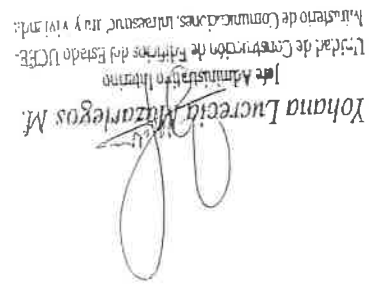 Yohana Lucrecia Mazariegos M.
Jefe Administrativo Interino
Unidad de Construcción de Edificios del Estado UCEE-
Ministerio de Comunicaciones, Infraestruc y